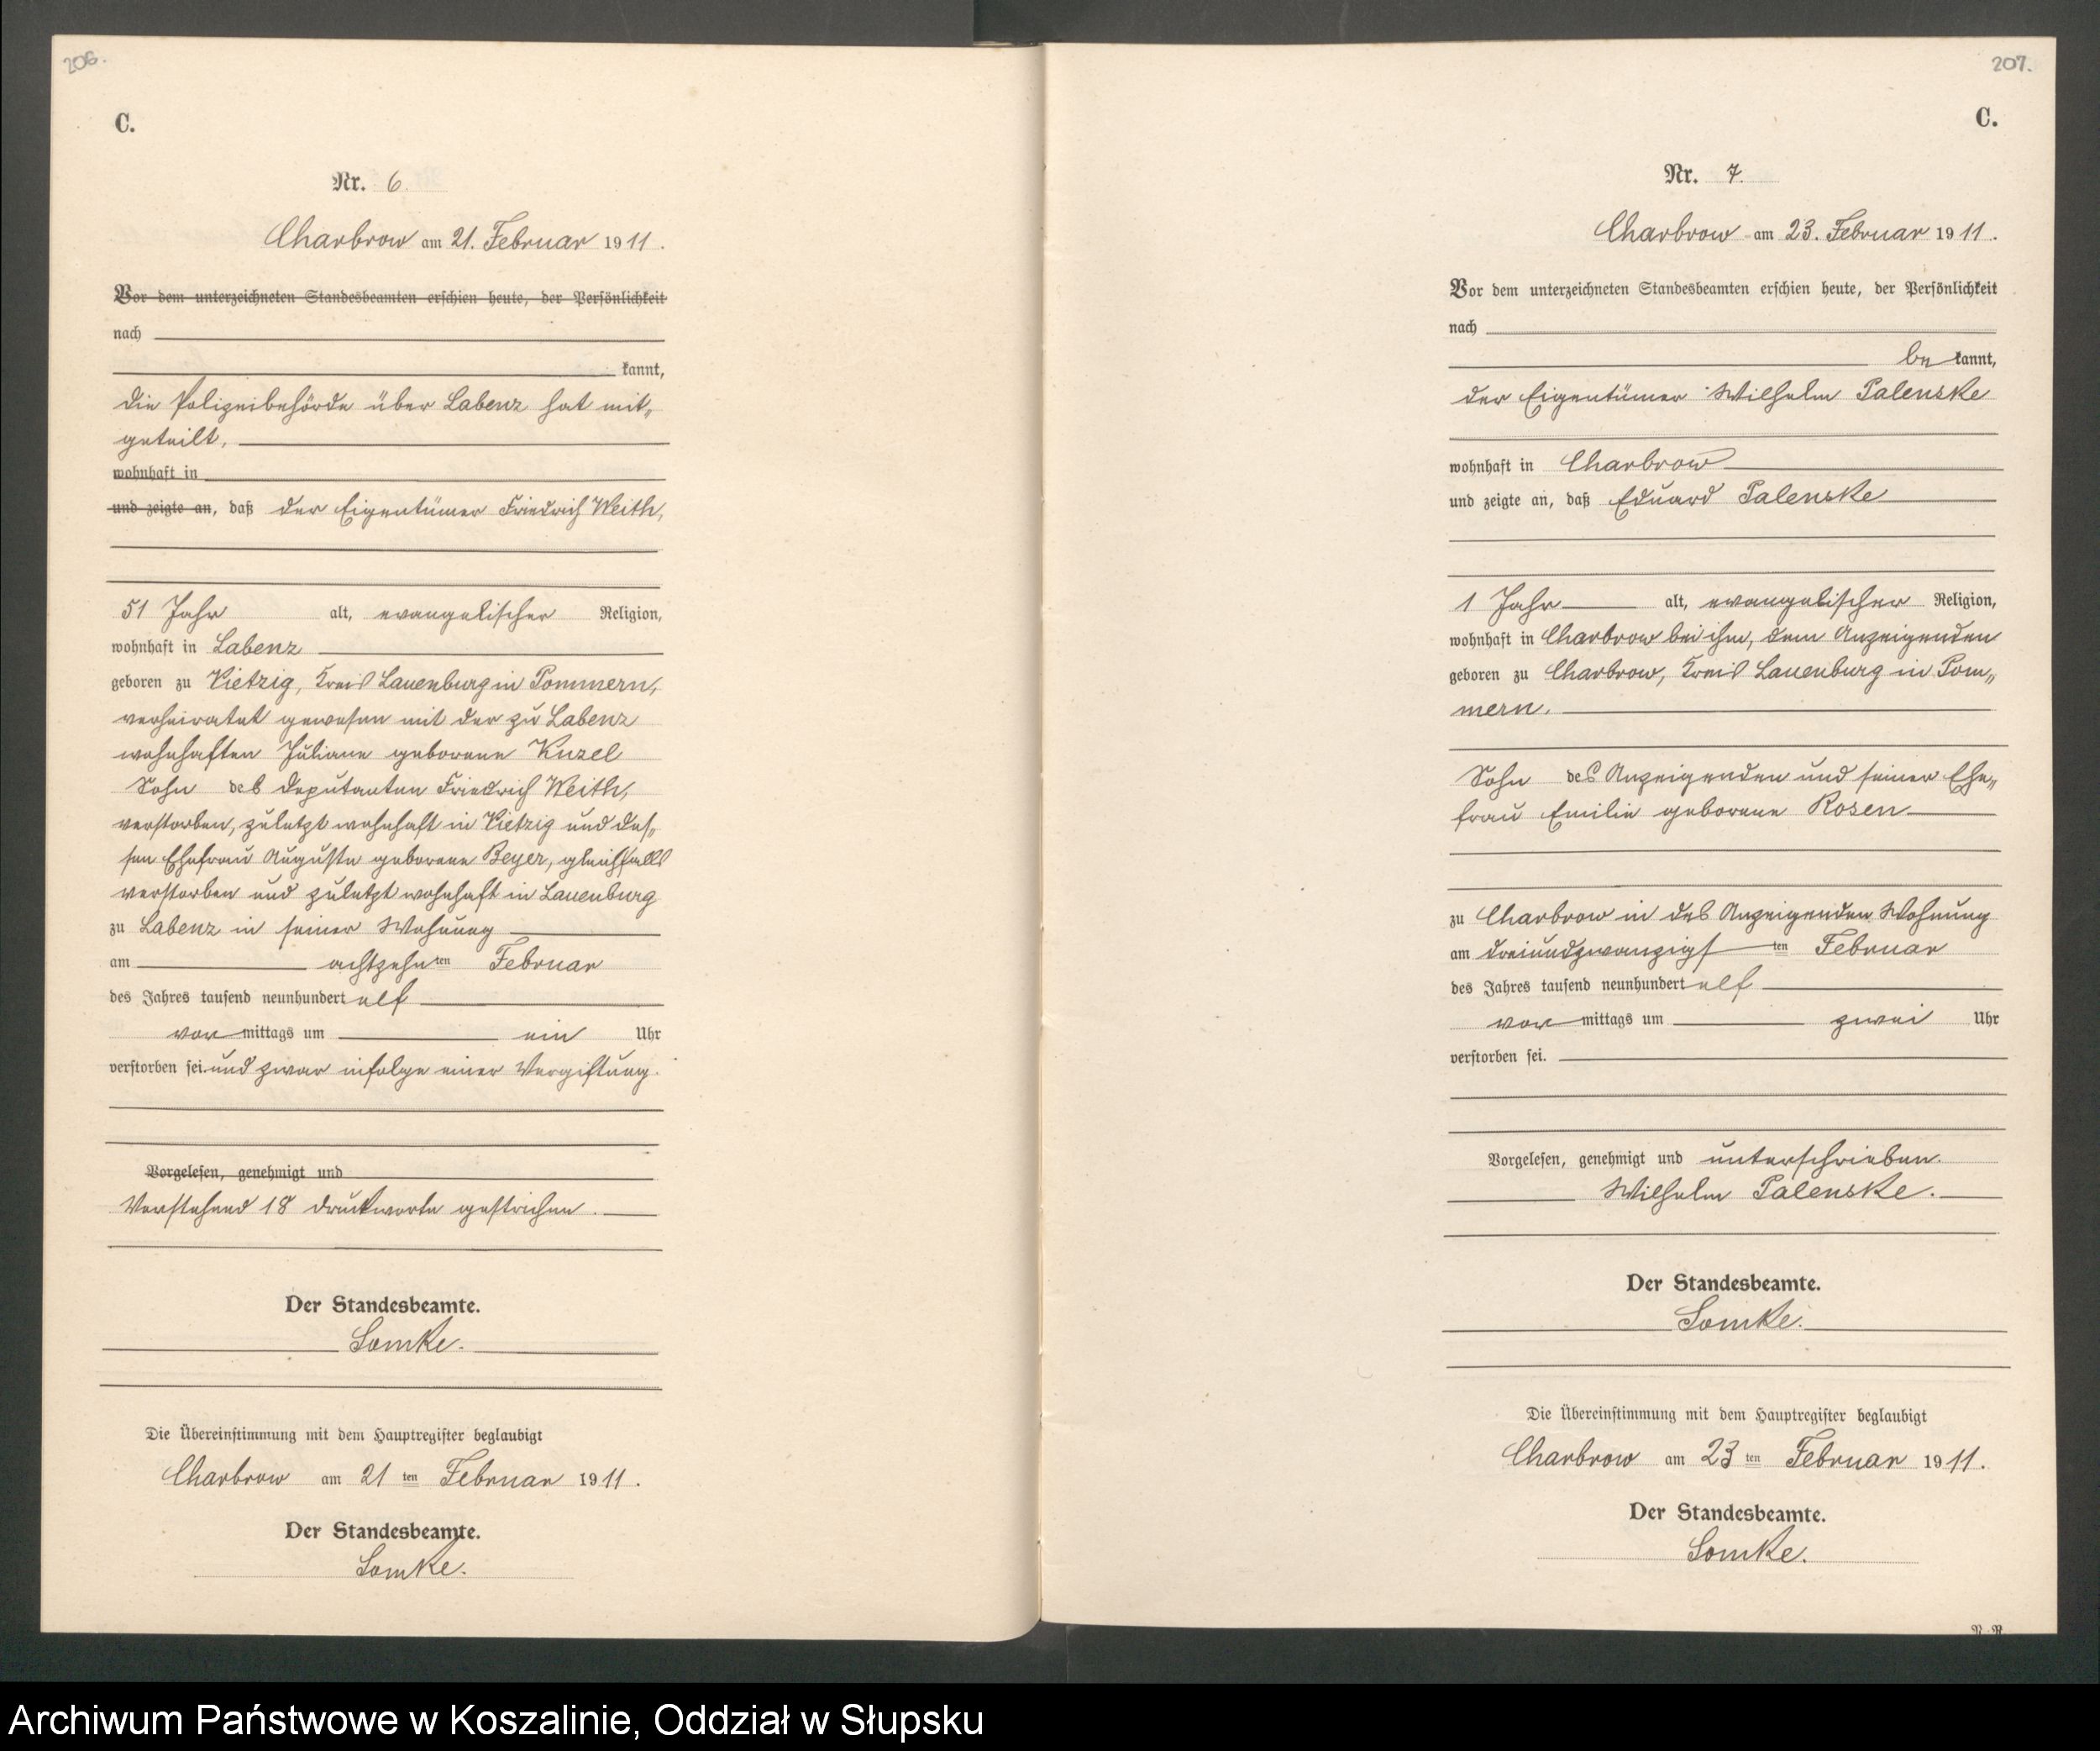 206.
C.
Nr. 6.
Charbrow am 21. Februar 1911.
Vor dem unterzeichneten Standesbeamten erschien heute, der Persönlichkeit
nach
kannt,
die Polizeibehörde über Labenz hat mit„
geteilt,
wohnhaft in
und zeigte an, daß der Eigentümer Friedrich Weith,
51 Jahr alt, evangelischer Religion,
wohnhaft in Labenz
geboren zu Vietzig, Kreis Lauenburg in Pommern,
verheiratet gewesen mit der zu Labenz
wohnhaften Juliane geborene Kuzel
Sohn des Deputanten Friedrich Weith,
verstorben, zuletzt wohnhaft in Vietzig und des„
sen Ehefrau Auguste geborene Beyer, gleichfalls
verstorben und zuletzt wohnhaft in Lauenburg
zu Labenz in seiner Wohnung
am achtzehnten Februar
des Jahres tausend neunhundert elf
vormittags um ein Uhr
verstorben sei und zwar infolge einer Vergiftung.
Vorgelesen, genehmigt und
Vorstehend 18 Druckworte gestrichen.
Der Standesbeamte.
Somke.
Die Übereinstimmung mit dem Hauptregister beglaubigt
Charbrow am 21 ten Februar 1911.
Der Standesbeamte.
Somke.
207.
C.
Nr. 7.
Charbrow am 23. Februar 1911.
Vor dem unterzeichneten Standesbeamten erschien heute, der Persönlichkeit
nach
bekannt,
der Eigentümer Wilhelm Palenske
wohnhaft in Charbrow
und zeigte an, daß Eduard Palenske
1 Jahr alt, evangelischer Religion,
wohnhaft in Charbrow bei ihm, dem Anzeigenden
geboren zu Charbrow, Kreis Lauenburg in Pom„
mern.
Sohn des Anzeigenden und seiner Ehe„
frau Emilie geborene Rosen
zu Charbrow in des Anzeigenden Wohnung
am dreiundzwanzigsten Februar
des Jahres tausend neunhundert elf
vormittags um zwei Uhr
verstorben sei.
Vorgelesen, genehmigt und unterschrieben.
Wilhelm Palenske.
Der Standesbeamte.
Somke.
Die Übereinstimmung mit dem Hauptregister beglaubigt
Charbrow am 23 ten Februar 1911.
Der Standesbeamte.
Somke.
Archiwum Państwowe w Koszalinie, Oddział w Słupsku